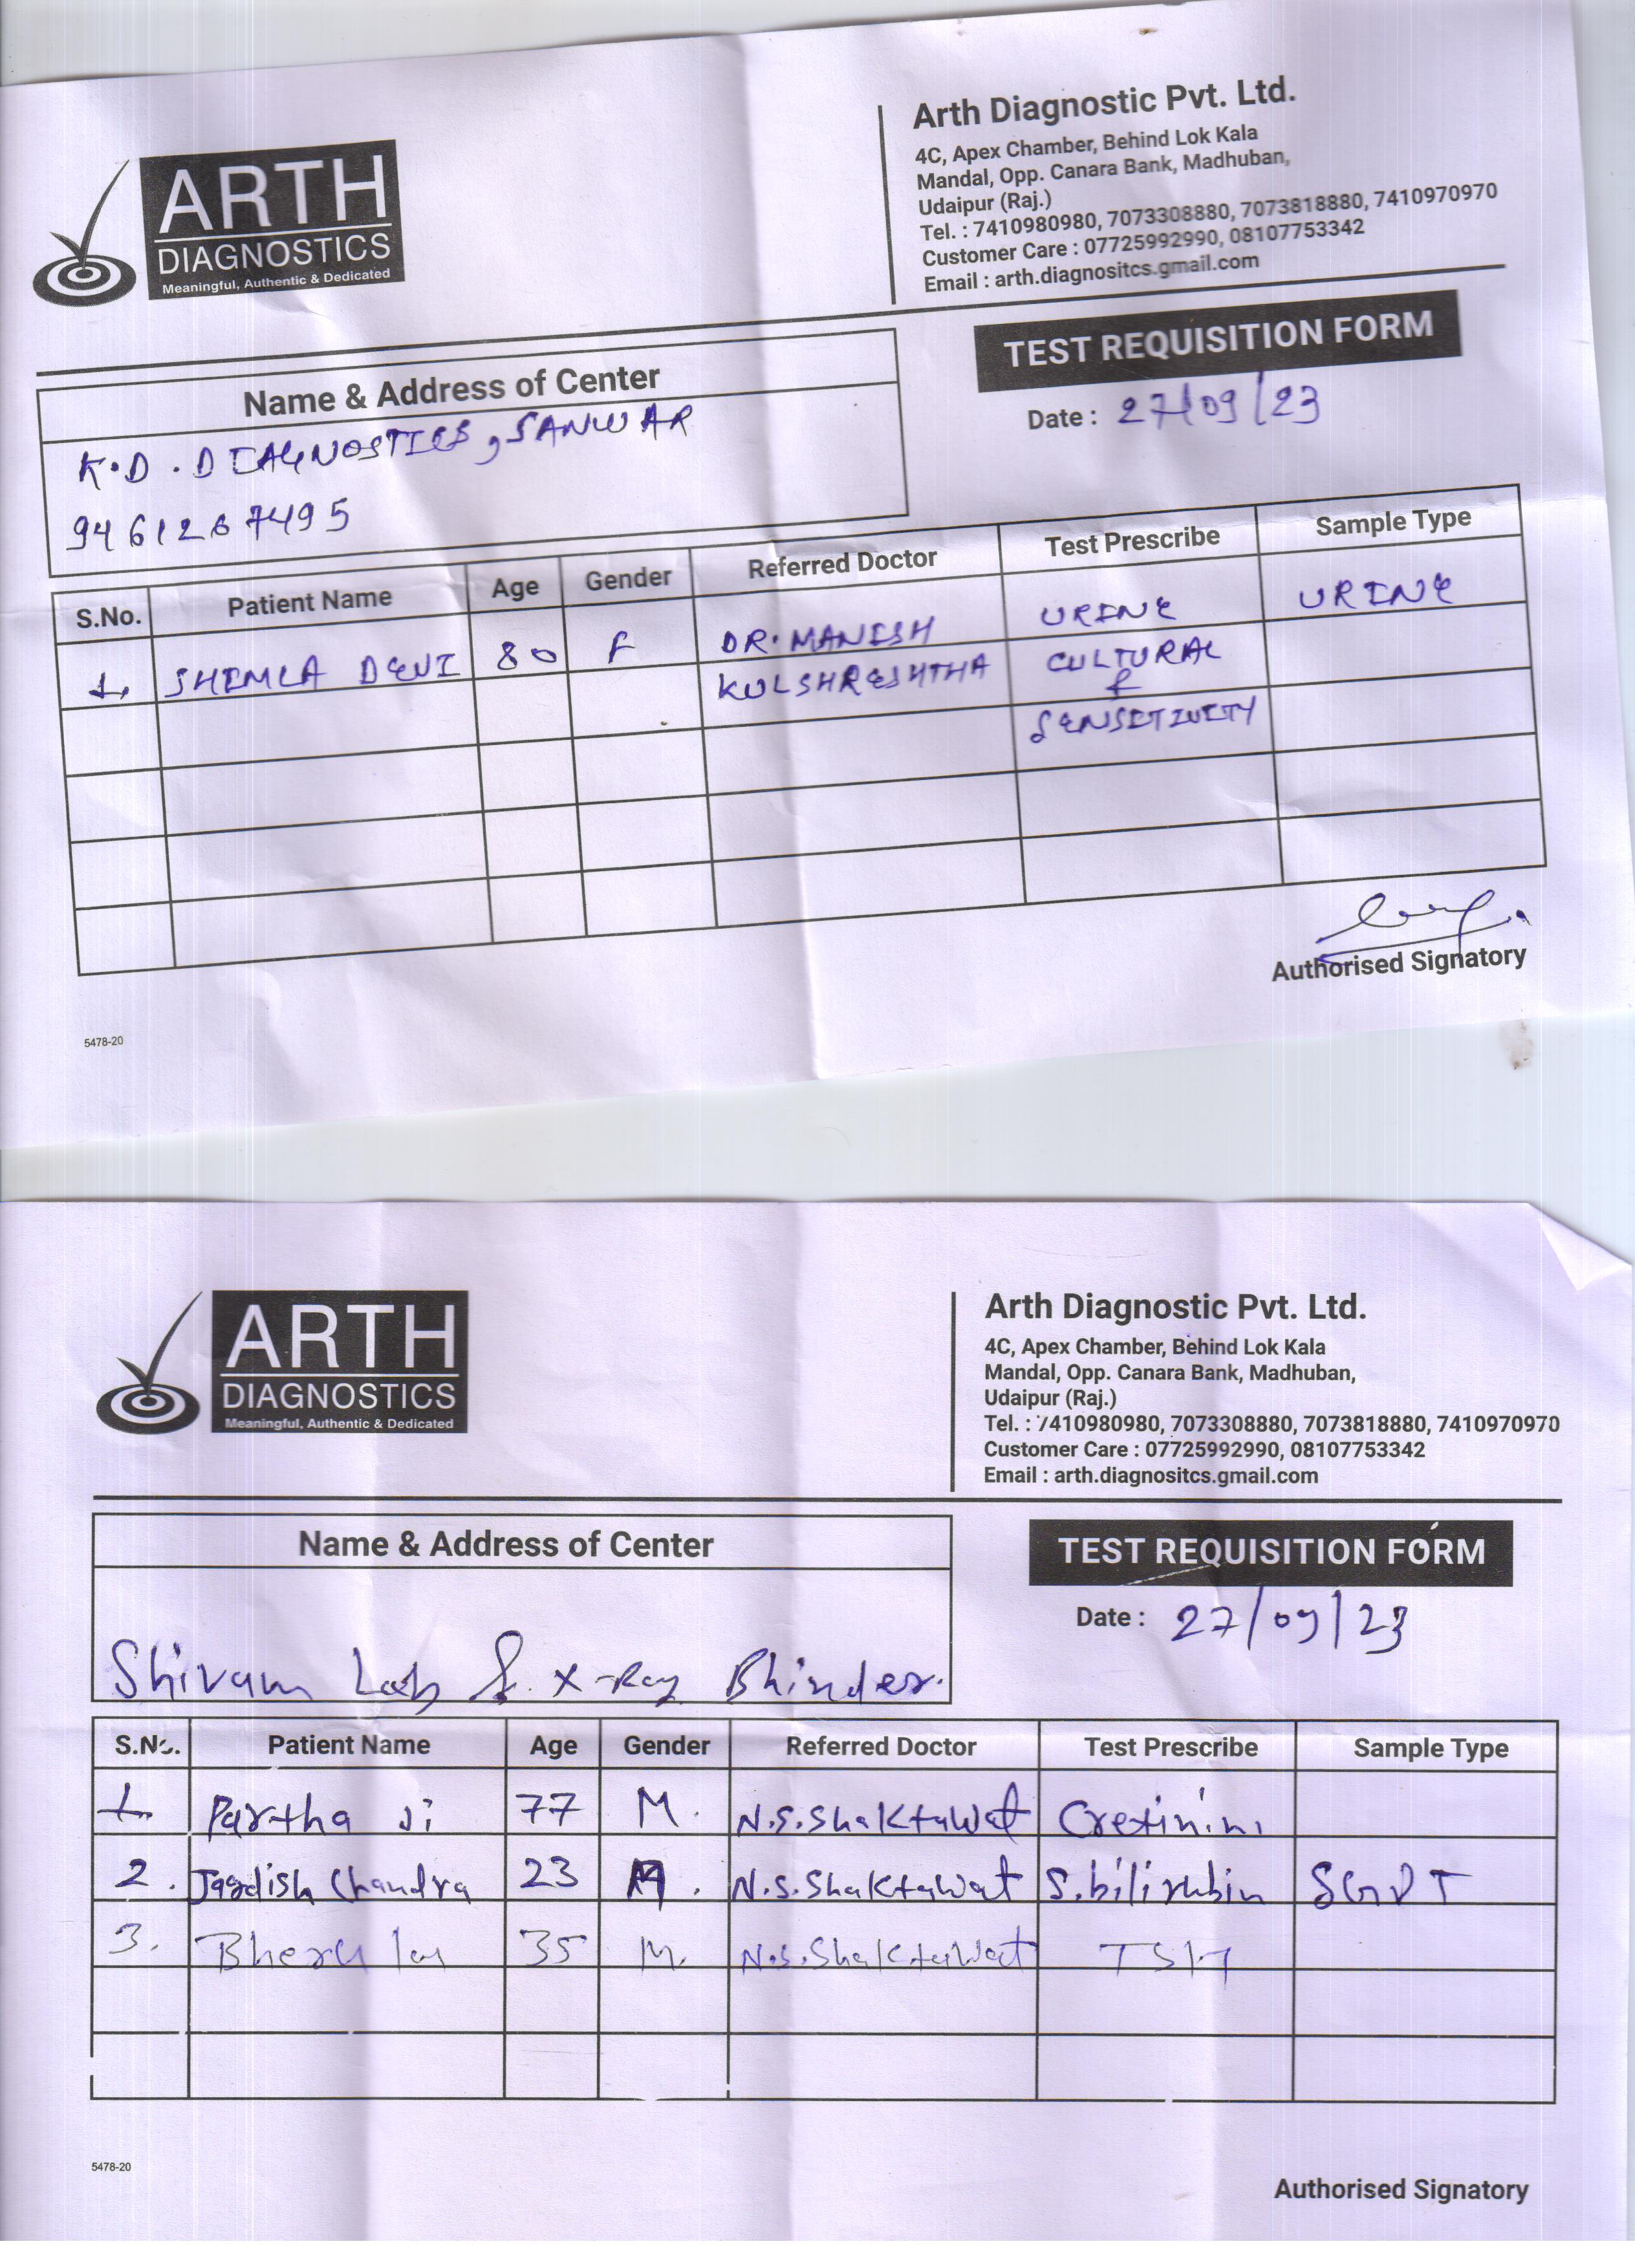 ARTH
DIAGNOSTICS
Meaningful, Authentic & Dedicated
Arth Diagnostic Pvt. Ltd.
4C, Apex Chamber, Behind Lok Kala
Mandal, Opp. Canara Bank, Madhuban,
Udaipur (Raj.)
Tel. : 7410980980, 7073308880, 7073818880, 7410970970
Customer Care : 07725992990, 08107753342
Email : arth.diagnositcs.gmail.com
TEST REQUISITION FORM
Date : 27/09/23
Name & Address of Center
K.D. DIAGNOSTICS, SANWAR
9461267495
S.No. Patient Name Age Gender Referred Doctor Test Prescribe Sample Type
1. SHIMLA DEVI 80 F DR. MANISH URINE URINE
KULSHRESHTHA CULTURAL
&
SENSITIVITY
Authorised Signatory
5478-20
ARTH
DIAGNOSTICS
Meaningful, Authentic & Dedicated
Arth Diagnostic Pvt. Ltd.
4C, Apex Chamber, Behind Lok Kala
Mandal, Opp. Canara Bank, Madhuban,
Udaipur (Raj.)
Tel. : 7410980980, 7073308880, 7073818880, 7410970970
Customer Care : 07725992990, 08107753342
Email : arth.diagnositcs.gmail.com
Name & Address of Center
TEST REQUISITION FORM
Date : 27/09/23
Shivam Lab & X-Ray Bhinder.
S.No. Patient Name Age Gender Referred Doctor Test Prescribe Sample Type
1. Partha Ji 77 M. N.S.Shaktawat Cretinini
2. Jagdish Chandra 23 M. N.S.Shaktawat S.bilirubin SGPT
3. Bheru lal 35 M. N.S.Shaktawat TSH
5478-20
Authorised Signatory